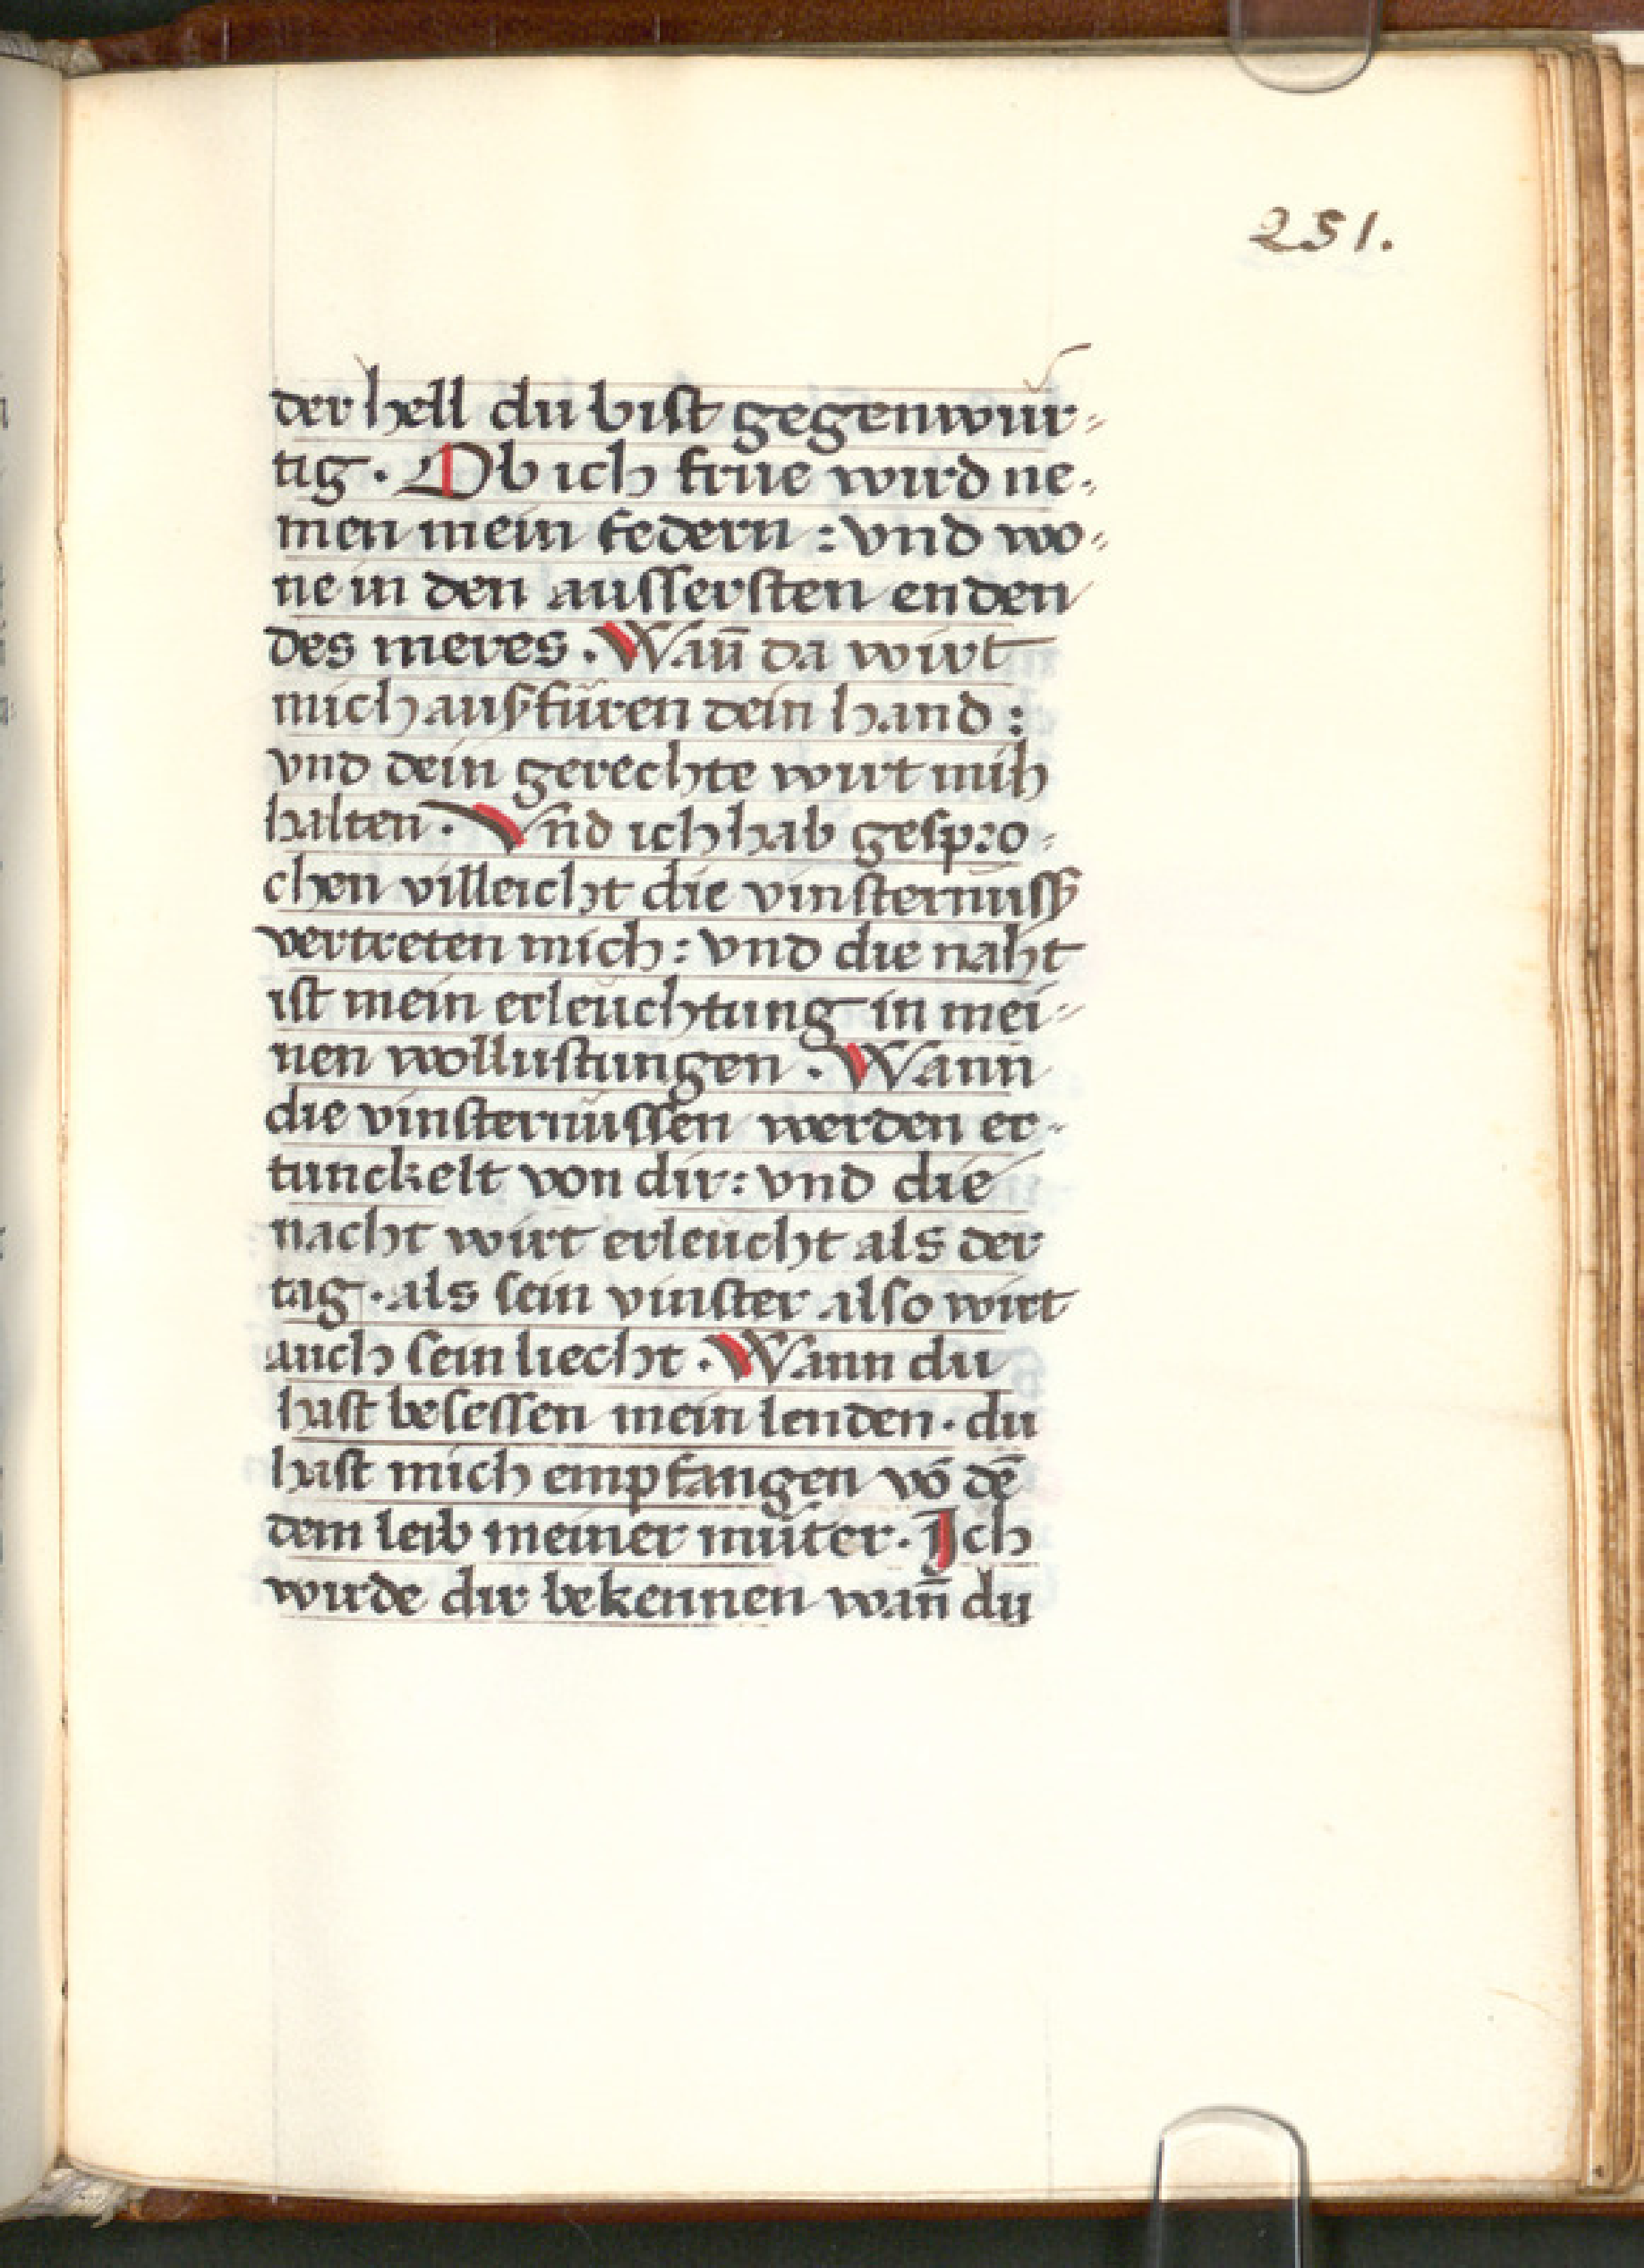 251.
der hell du bist gegenwur-
tig. Ob ich frue wird ne-
men mein federn : vnd wo-
ne in den aussersten enden
des meres. Wañ da wirt
mich ausfűren dein hand :
vnd dein gerechte wirt mih
halten. Vnd ich hab gespro-
chen villeicht die vinsternuss
vertreten mich : vnd die naht
ist mein erleuchtung in mei-
nen wollustungen. Wann
die vinsternűssen werden er-
tunckelt von dir : vnd die
nacht wirt erleucht als der
tag. als sein vinster also wirt
auch sein liecht. Wann du
hast besessen mein lenden. du
hast mich empfangen vō dē
dem leib meiner műter. Ich
wirde dir bekennen wañ du